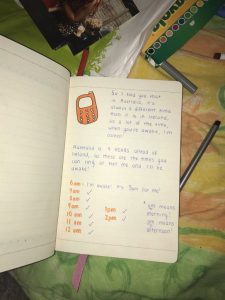 So I bet you that
in Australia, it's
always a different time
than it is in Ireland,
so a lot of the time,
when you're awake, I'm
asleep!
Australia is 9 hours ahead of
Ireland, so these are the times you
can ring or text me and I'll be
awake!
6 am - I'm awake! It's 3pm for me!
7 am ✓
8 am ✓
9 am ✓
10 am ✓
11 am ✓
12 am ✓
1 pm ✓
2 pm ✓
* am means
morning!
* pm means
afternoon!